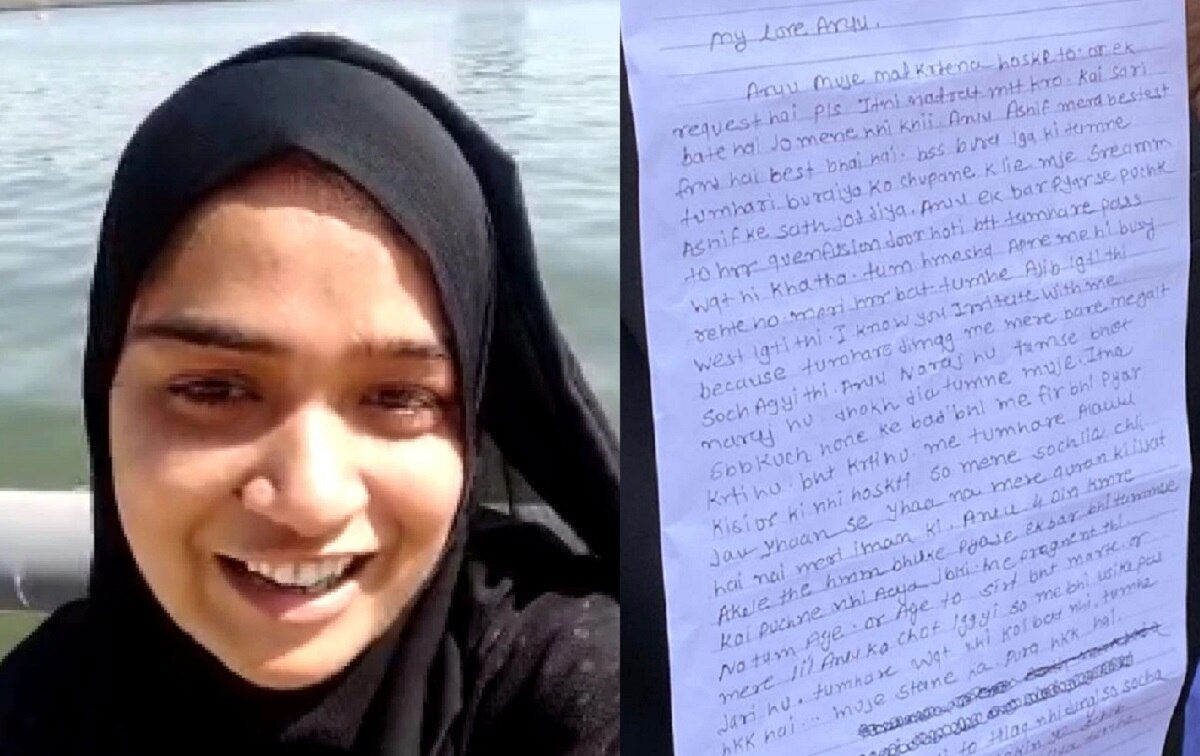 My Love Aruu.
Aruu muje maf krtena hoske to. or ek
request hai pls Itni nafrat mtt kro. Kai sari
bate hai Jo mene nhi khii. Aruu Ashif mera bestest
frnd hai best bhai hai. bss bura lga ki tumne
tumhari buraiya ko chupane k lie mje
Ashif ke sath jod diya. Aruu ek bar Pyar se pochte
to door hoti btt tumhare pass
wqt hi Kha tha. tum hmesha Apne me hi busy
rehte ho. meri hrr bat tumhe Ajib lgti thi
west lgti thi. I know you Irritate with me
because tumhare dimag me mere bare me galt
soch Agyi thi. Aruu Naraj hu tumse bhot
naraj hu dhokh dia tumne muje. Itna
Sbb Kuch hone ke bad bhi me fir bhi Pyar
krti hu. bht krti hu. me tumhare Alawa
kisi or ki nhi hoskti so mene soch lia chli
Jau yhaan se yhaa na mere quran ki
hai nai meri iman ki. Aruu 4 Din kmre
Akele the hmm bhuke Pyase ek bar bhi tumme
koi puchne nhi Aaya Jbki me
Na tum Age. or Age to sirf bht mark. or
mere lil Aruu ko chot lggyi so me bhi usike pas
Jari hu. tumhare wqt nhi koi bat nhi. tumhe
hkk hai... muje stane na pura hkk hai.
to nhi dungi so socha